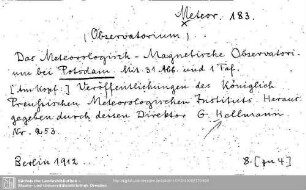 Meteor. 183.
(Observatorium).
Das Meteorologisch-Magnetische Observatori-
um bei Potsdam. Mit 31 Abb. und 1 Taf.
[Am Kopf:] Veröffentlichungen des Königlich
Preußischen Meteorologischen Instituts. Heraus-
gegeben durch dessen Direktor G. Hellmann
Nr. 253.
Berlin 1912
8. [zu 4]